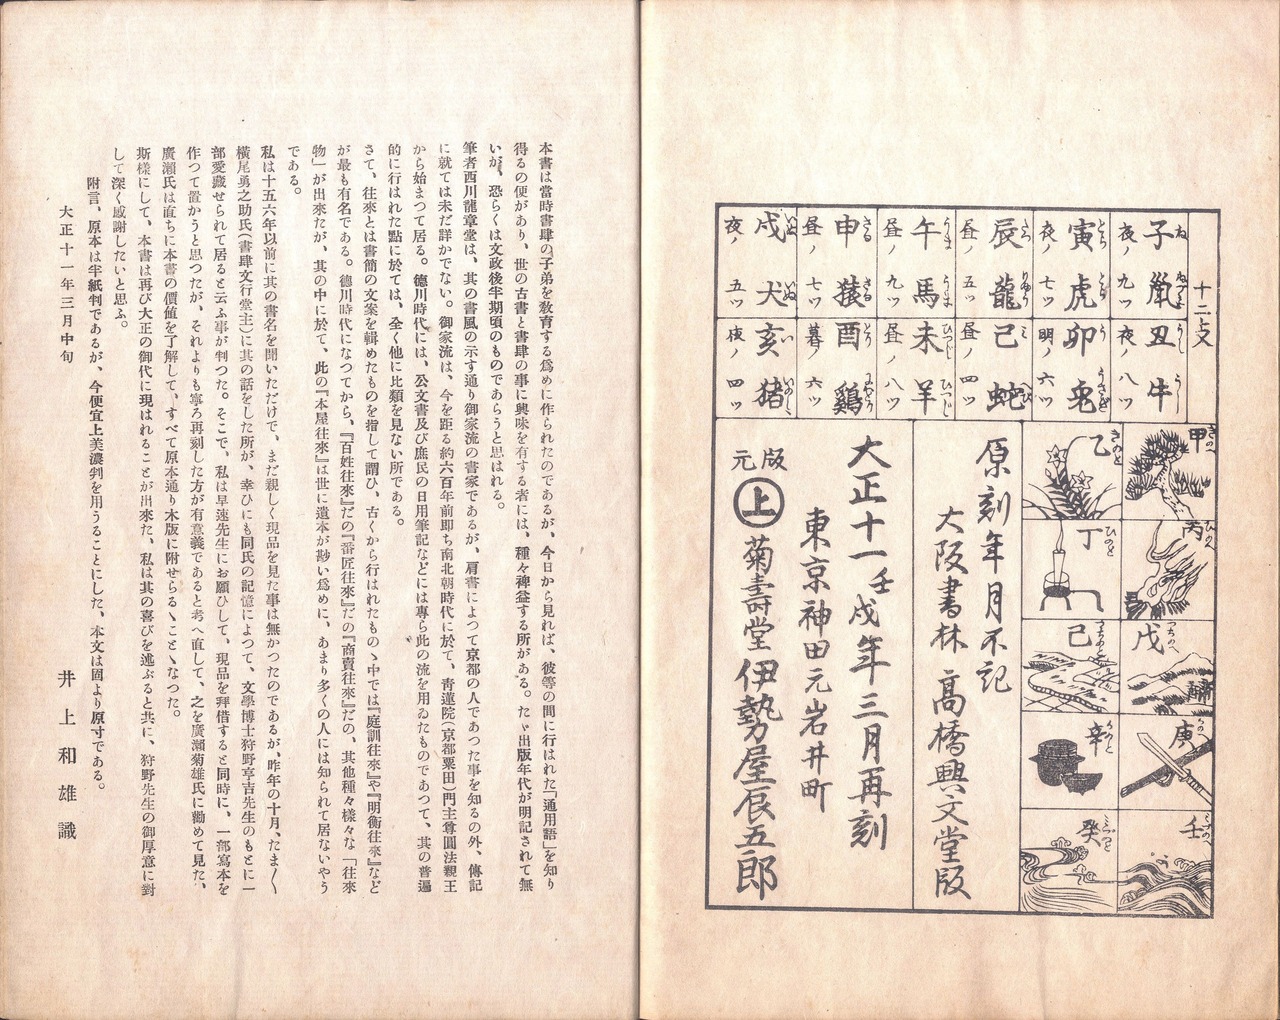 十二支
子 ね
鼠 ねずみ
夜ノ 九ツ
丑 うし
牛 うし
夜ノ 八ツ
寅 とら
虎 とら
夜ノ 七ツ
卯 う
兎 うさぎ
明ノ 六ツ
辰 たつ
龍 りゆう
昼ノ 五ツ
巳 み
蛇 へび
昼ノ 四ツ
午 うま
馬 うま
昼ノ 九ツ
未 ひつじ
羊 ひつじ
昼ノ 八ツ
申 さる
猿 さる
昼ノ 七ツ
酉 とり
鷄
暮ノ 六ツ
戌 いぬ
犬 いぬ
夜ノ 五ツ
亥 い
猪 いのしし
夜ノ 四ツ
甲 きのへ
乙 きのと
丙 ひのへ
丁 ひのと
戊 つちのへ
己 つちのと
庚 かのへ
辛 かのと
壬 みづのへ
癸 みづのと
原刻年月不記
大阪書林 高橋興文堂版
大正十一壬戌年三月再刻
東京神田元岩井町
元版 上 菊壽堂 伊勢屋辰五郎
本書は當時書肆の子弟を敎育する爲めに作られたのであるが、今日から見れば、彼等の間に行はれた「通用語」を知り
得るの便があり、世の古書と書肆の事に興味を有する者には、種々裨益する所がある。たゞ出版年代が明記されて無
いが、恐らくは文政後半期頃のものであらうと思はれる。
筆者西川龍章堂は、其の書風の示す通り御家流の書家であるが、肩書によつて京都の人であつた事を知るの外、傳記
に就ては未だ詳かでない。御家流は、今を距る約六百年前卽ち南北朝時代に於て、靑蓮院(京都粟田)門主尊圓法親王
から始まつて居る。德川時代には、公文書及び庶民の日用筆記などには專ら此の流を用ゐたものであつて、其の普遍
的に行はれた點に於ては、全く他に比類を見ない所である。
さて、往來とは書簡の文案を輯めたものを指して謂ひ、古くから行はれたものゝ中では『庭訓往來』や『明衡往來』など
が最も有名である。德川時代になつてから、『百姓往來』だの『番匠往來』だの『商賣往來』だの、其他種々樣々な「往來
物」が出來たが、其の中に於て、此の『本屋往來』は世に遺本が尠い爲めに、あまり多くの人には知られて居ないやう
である。
私は十五六年以前に其の書名を聞いただけで、まだ親しく現品を見た事は無かつたのであるが、昨年の十月、たま〱
橫尾勇之助氏(書肆文行堂主)に其の話をした所が、幸ひにも同氏の記憶によつて、文學博士狩野亨吉先生のもとに一
部愛藏せられて居ると云ふ事が判つた。そこで、私は早速先生にお願ひして、現品を拜借すると同時に、一部寫本を
作つて置かうと思つたが、それよりも寧ろ再刻した方が有意義であると考へ直して、之を廣瀨菊雄氏に勸めて見た、
廣瀨氏は直ちに本書の價値を了解して、すべて原本通り木版に附せらるゝことゝなつた。
斯樣にして、本書は再び大正の御代に現はれることが出來た、私は其の喜びを述ぶると共に、狩野先生の御厚意に對
して深く感謝したいと思ふ。
附言、原本は半紙判であるが、今便宜上美濃判を用うることにした、本文は固より原寸である。
大正十一年三月中旬
井上和雄識